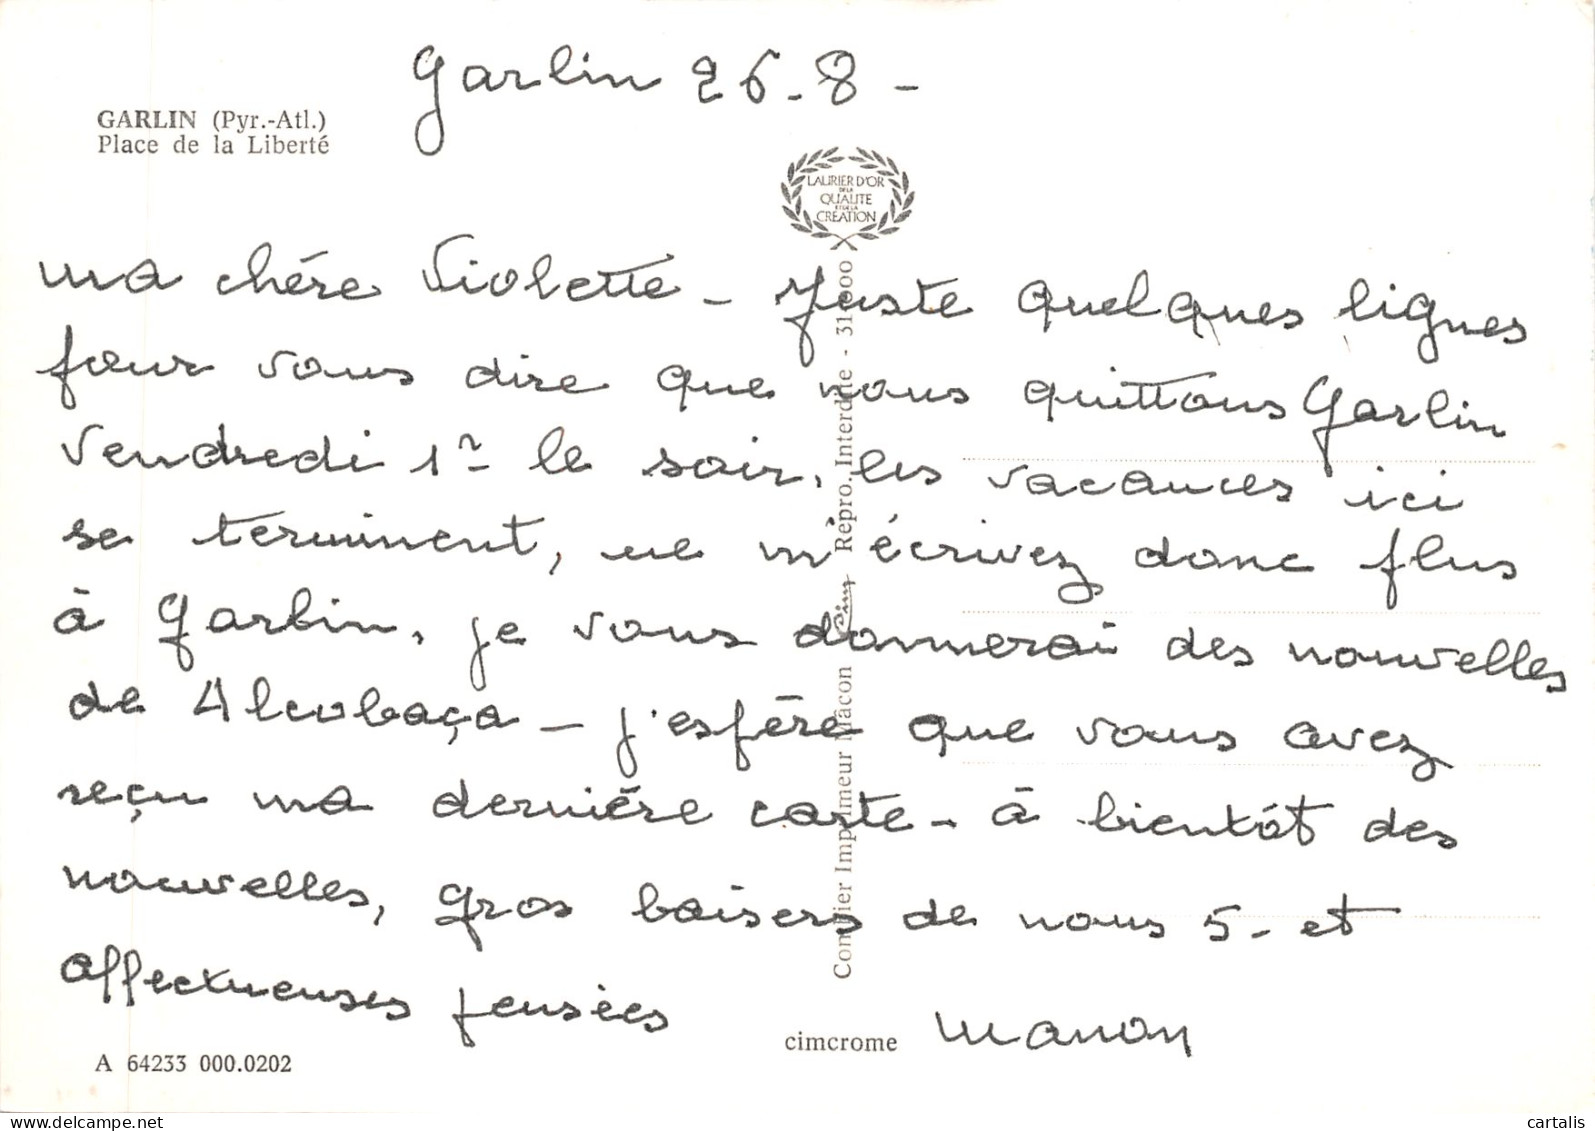 Garlin 26-8-
GARLIN (Pyr.-Atl.)
Place de la Liberté
LAURIER D'OR
DE LA
QUALITE
ET DE LA
CREATION
ma chére Violette - Juste quelques lignes
pour vous dire que nous quittons Garlin
Vendredi 1er le soir, les vacances ici
se terminent, ne m'écrivez donc plus
à Garlin, je vous donnerai des nouvelles
de Alcobaça - j'espère que vous avez
reçu ma derniére carte - à bientôt des
nouvelles, gros baisers de nous 5 - et
affectueuses pensées
Manon
Combier Imprimeur Mâcon Cim Repro. Interdite - 31.000
cimcrome
A 64233 000.0202
www.delcampe.net
cartalis